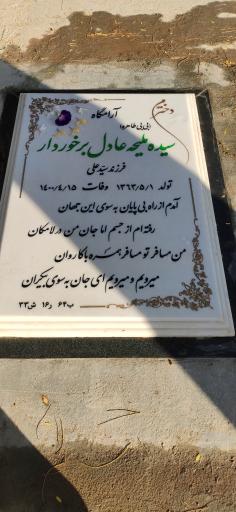 دخترم
آرامگاه
(بی بی طاهره)
سیده ملیحه عادل برخوردار
فرزند سید علی
تولد ۱۳۶۳/۵/۱ وفات ۱۴۰۰/۴/۱۵
آمدم از راه بی پایان به سوی این جهان
رفته ام از جسم اما جان من در لامکان
من مسافر تو مسافر همره با کاروان
میرویم و میرویم ای جان به سوی بیکران
ب۶۴ ر۱۶ ش۳۳